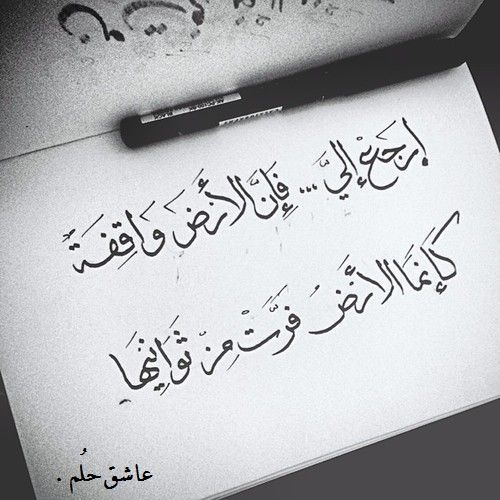 إرجعْ إليَّ ... فإنَّ الأرضَ وَاقِفَةٌ
كأنما الأرضُ فرَّتْ مِنْ ثَوَانيها
عاشق حُلم .